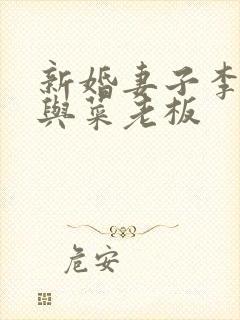 新婚妻子李
與菜老板
危安